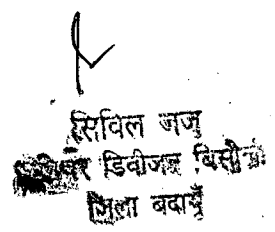 सिविल जज
डिवीजन बिसौली
जिला बदायूँ